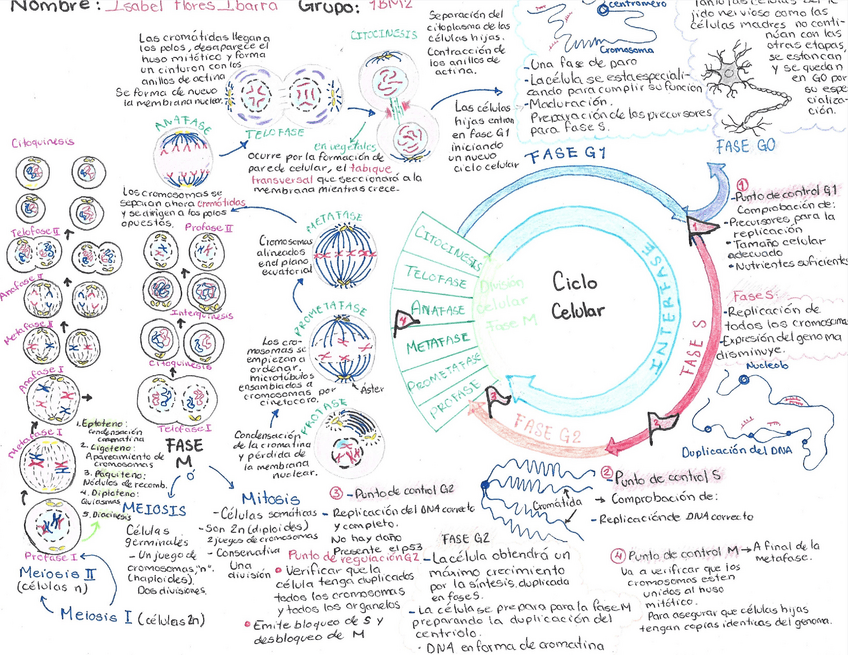 Nombre: Isabel Flores Ibarra Grupo: 1BM2
Las cromátidas llegan a
los polos, desaparece el
huso mitótico y forma
un cinturon con los
anillos de actina
Se forma de nuevo
la membrana nuclear.
TELOFASE
CITOCINESIS
Separación del
citoplasma de las
células hijas.
Contracción de
los anillos de
actina.
en vegetales
ocurre por la formación de
pared celular, el tabique
transversal que seccionará a la
membrana mientras crece.
Las células
hijas entran
en fase G1
iniciando
un nuevo
ciclo celular
centromero
Cromosoma
-Una fase de paro
-La célula se esta especiali-
zando para cumplir su función
-Maduración.
Preparación de los precursores
para fase S.
jido nervioso como las
células madres no conti-
núan con las
otras etapas,
se estancan
y se quedan
en G0 por
su espe
cializa-
ción.
FASE G0
ANAFASE
Los cromosomas se
separan ahora Cromátidas
y se dirigen a los polos
opuestos.
METAFASE
Cromosomas
alineados
en el plano
ecuatorial
PROMETAFASE
Los cro-
mosomas se
empiezan a
ordenar,
microtúbulos
ensamblados a
cromosomas por
cinetocoro.
Áster
PROFASE
Condensación
de la cromatina
y pérdida de
la membrana
nuclear.
Citoquinesis
Telofase II
Anafase II
Metafase II
Profase II
Interquinesis
Citoquinesis
Telofase I
Anafase I
Metafase I
Profase I
1. Leptoteno:
Condensación
cromatina
2. Cigoteno:
Apareamiento de
cromosomas
3. Paquiteno:
Nódulos de recomb.
4. Diploteno:
Quiasmas
5. Diacinesis
Meiosis II
(células n)
Meiosis I (células 2n)
FASE
M
o
MEIOSIS
Células
germinales
-Un juego de
cromosomas,"n".
(haploides)
Dos divisiones
Mitosis
-Células somáticas
-Son 2n (diploides)
2 juegos de cromosomas
-Conservativa
Una
división
Ciclo
Celular
FASE G1
INTERFASE
FASE S
FASE G2
División
celular
Fase M
CITOCINESIS
TELOFASE
ANAFASE
METAFASE
PROMETAFASE
PROFASE
1
2
3
4
1
-Punto de control G1
Comprobación de:
-Precursores para la
replicación
• Tamaño celular
adecuado
• Nutrientes suficientes
Fase S:
-Replicación de
todos los cromosomas
-Expresión del genoma
disminuye.
Nucleolo
Duplicación del DNA
2 -Punto de control S
→ Comprobación de:
-Replicación de DNA correcto
Cromátida
3 -Punto de control G2
-Replicación del DNA correcto
y completo.
No hay daño
Presente el p53
Punto de regulación G2
• Verificar que la
célula tenga duplicados
todos los cromosomas
y todos los organelos
• Emite bloqueo de S y
desbloqueo de M
FASE G2
-La célula obtendrá un
máximo crecimiento
por la síntesis, duplicada
en fase S.
-La célula se prepara para la fase M
preparando la duplicación del
centriolo.
· DNA en forma de cromatina
4 Punto de control M → A final de la
metafase.
Va a verificar que los
cromosomas esten
unidos al huso
mitótico.
Para asegurar que células hijas
tengan copias identicas del genoma.